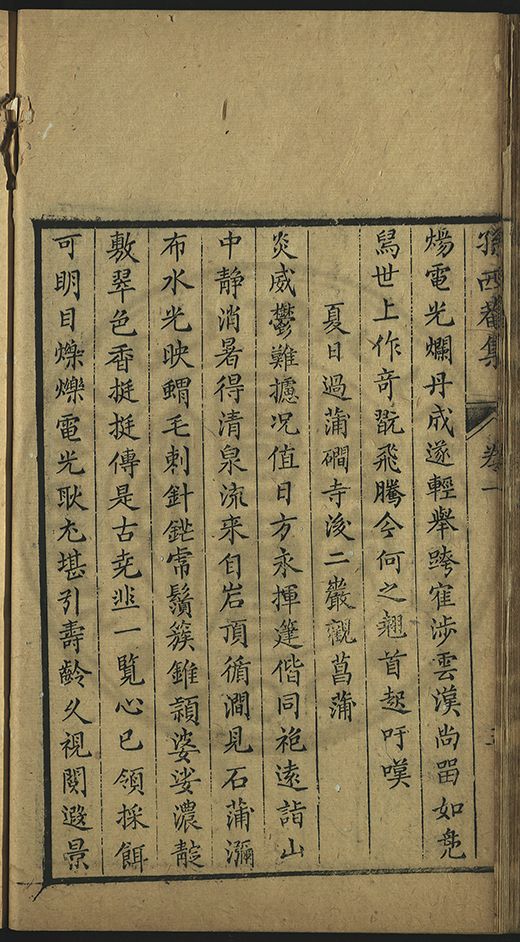 孫西菴集 卷一
煬電光爛丹成遂輕舉跨寉涉雲漢尚留如鳧
舄世上作竒翫飛騰今何之翹首起吁嘆
夏日過蒲磵寺後二巖觀菖蒲
炎威鬱難攄况值日方永揮箑偕同袍遠詣山
中静消暑得清泉流来自岩頂循澗見石蒲瀰
布水光映蝟毛刺針鋩常鬚簇錐頴婆娑濃靛
敷翠色香挺挺傳是古堯韭一覽心已領採餌
可明目爍爍電光耿尤堪引壽齡久視閱遐景